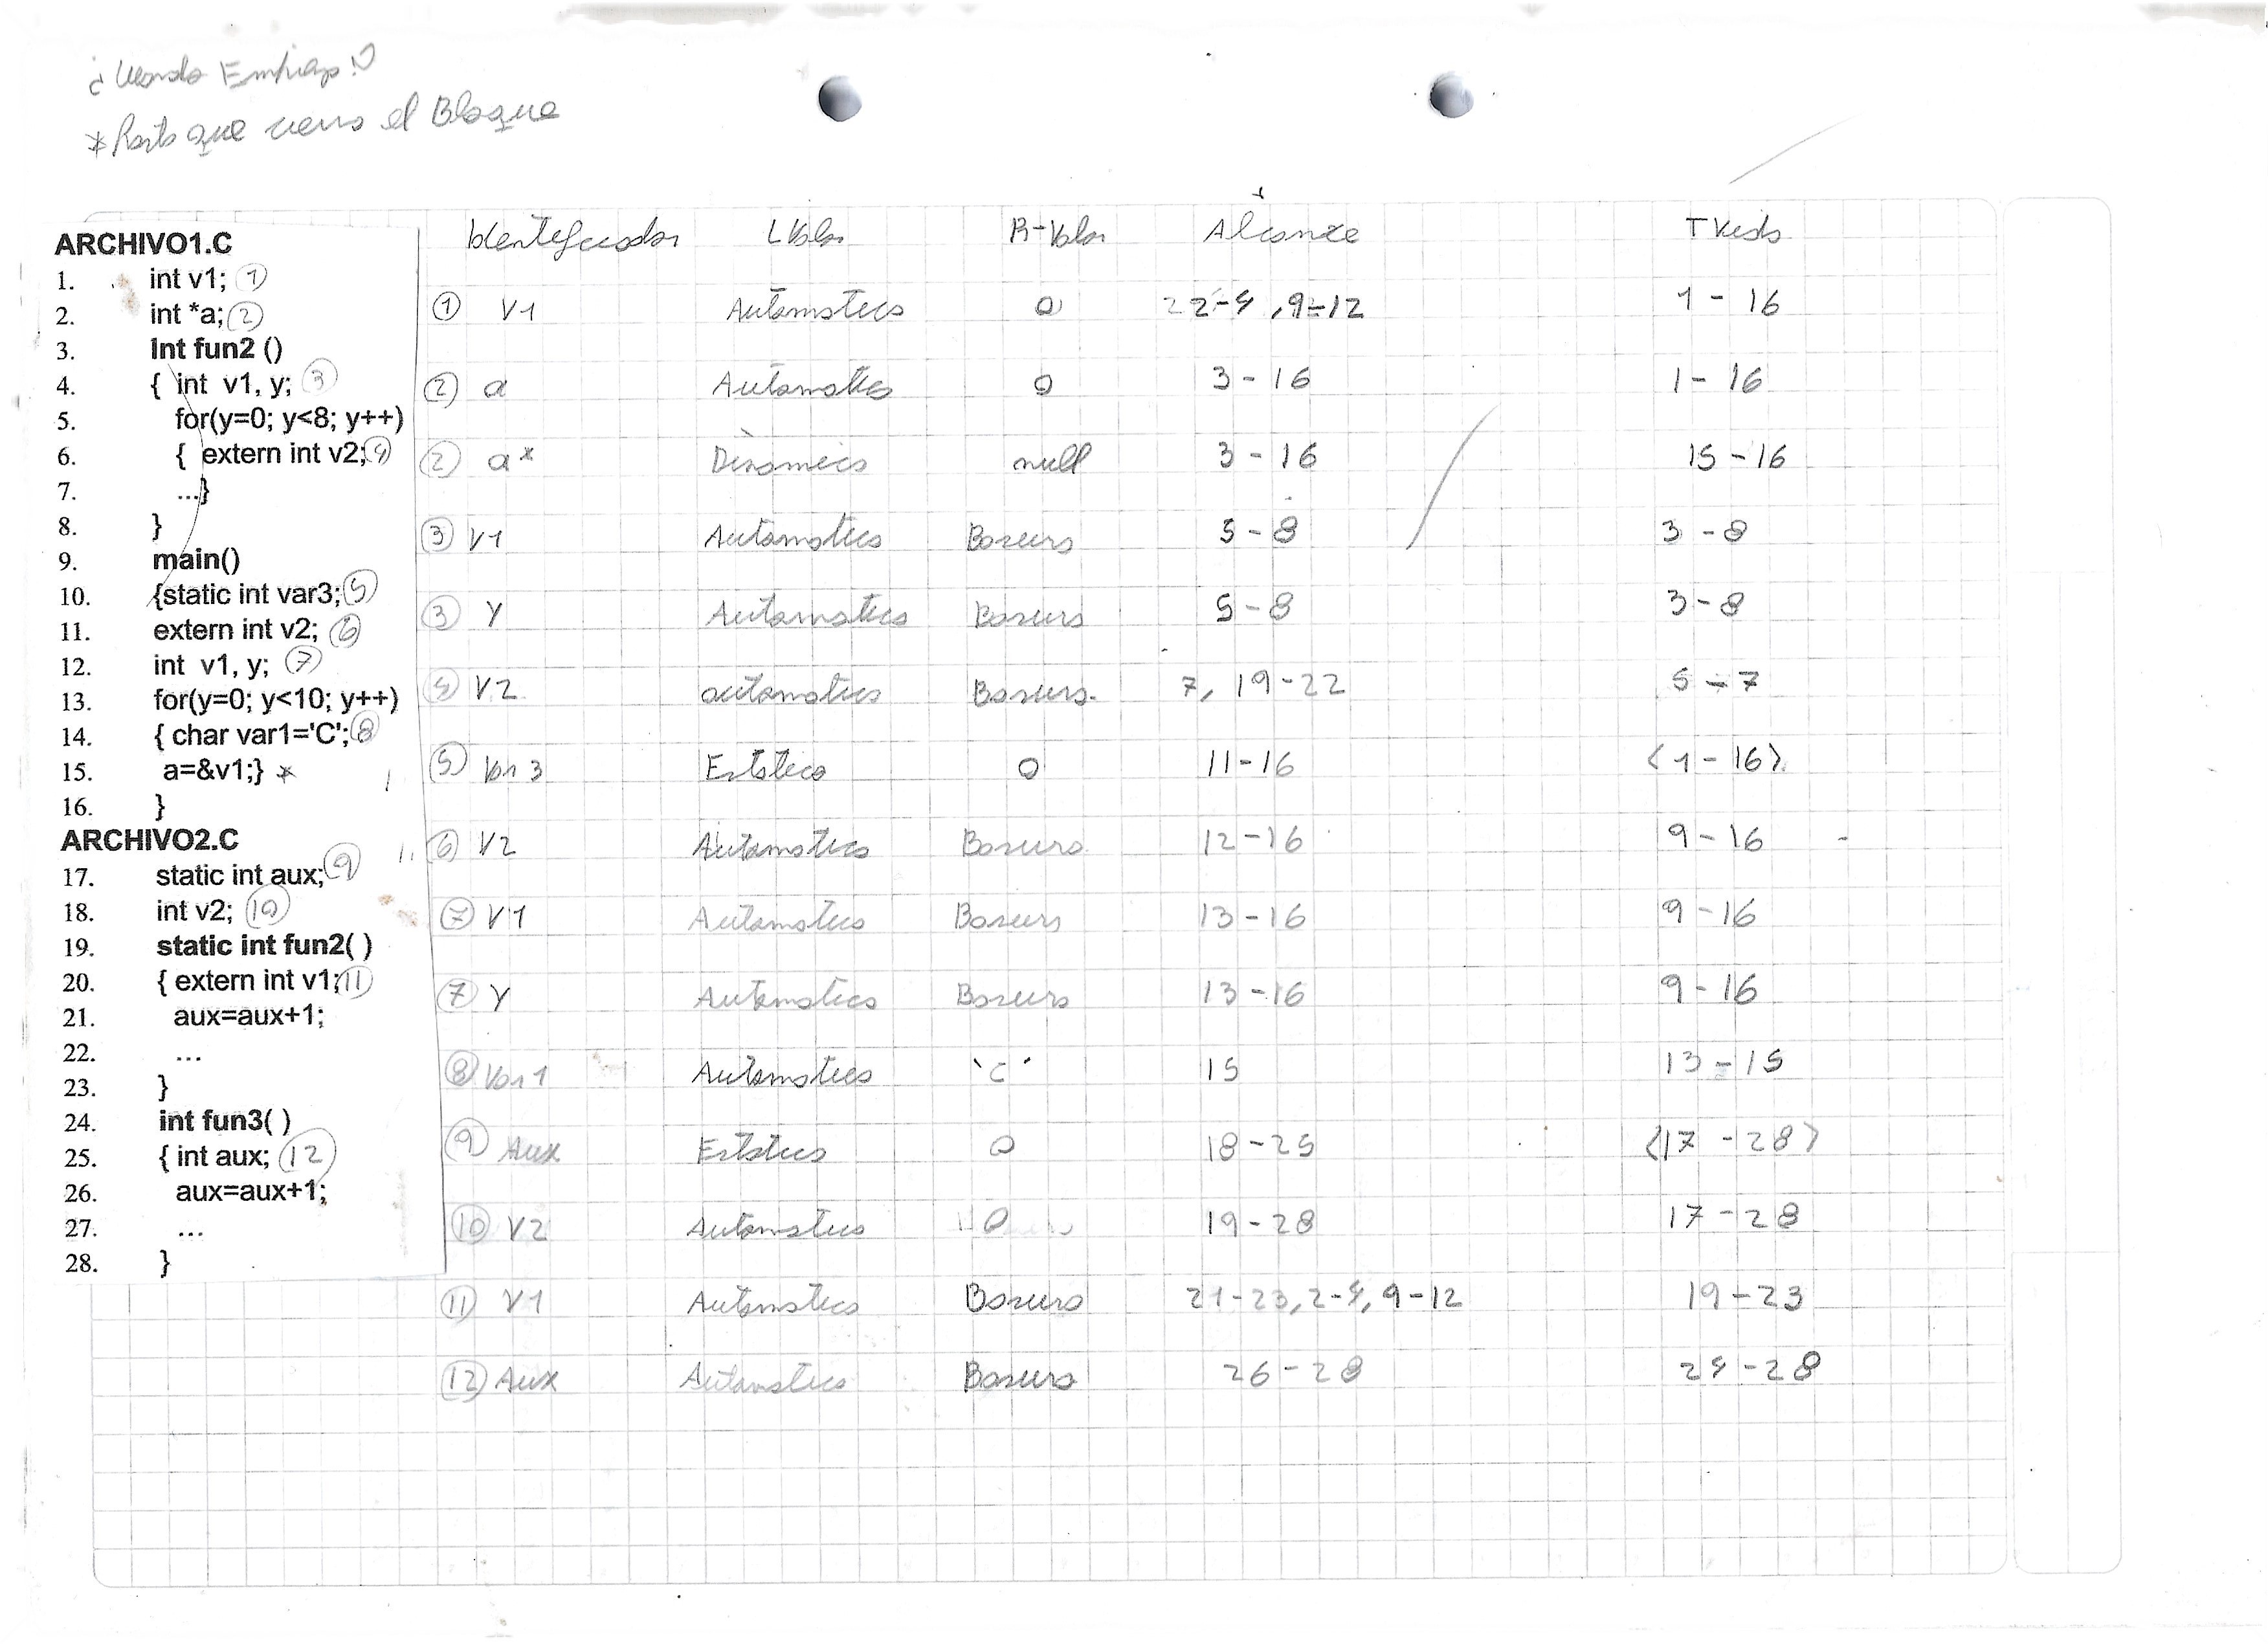 ¿Cuando Empiezo!?
* Hasta que cierra el Bloque
ARCHIVO1.C
1. int v1; ①
2. int *a; ②
3. Int fun2 ()
4. { int v1, y; ③
5. for(y=0; y<8; y++)
6. { extern int v2; ④
7. ...}
8. }
9. main()
10. {static int var3; ⑤
11. extern int v2; ⑥
12. int v1, y; ⑦
13. for(y=0; y<10; y++)
14. { char var1='C'; ⑧
15. a=&v1;} *
16. }
ARCHIVO2.C
17. static int aux; ⑨
18. int v2; ⑩
19. static int fun2( )
20. { extern int v1; ⑪
21. aux=aux+1;
22. ...
23. }
24. int fun3( )
25. { int aux; ⑫
26. aux=aux+1;
27. ...
28. }
Identificador LValor R-Valor Alcance TVida
① V1 Automatica 0 2-4, 9-12 1 - 16
② a Automatica 0 3 - 16 1 - 16
② a* Dinamica null 3 - 16 15 - 16
③ V1 Automatica Basura 5 - 8 3 - 8
③ Y Automatica Basura 5 - 8 3 - 8
④ V2 automatica Basura 7, 19-22 5 - 7
⑤ Var3 Estatica 0 11-16 <1 - 16>
⑥ V2 Automatica Basura 12-16 9 - 16
⑦ V1 Automatica Basura 13-16 9-16
⑦ Y Automatica Basura 13-16 9-16
⑧ Var1 Automatica 'C' 15 13-15
⑨ Aux Estatica 0 18-25 <17 - 28>
⑩ V2 Automatica 0 19-28 17-28
⑪ V1 Automatica Basura 21-23, 2-4, 9-12 19-23
⑫ Aux Automatica Basura 26-28 24-28